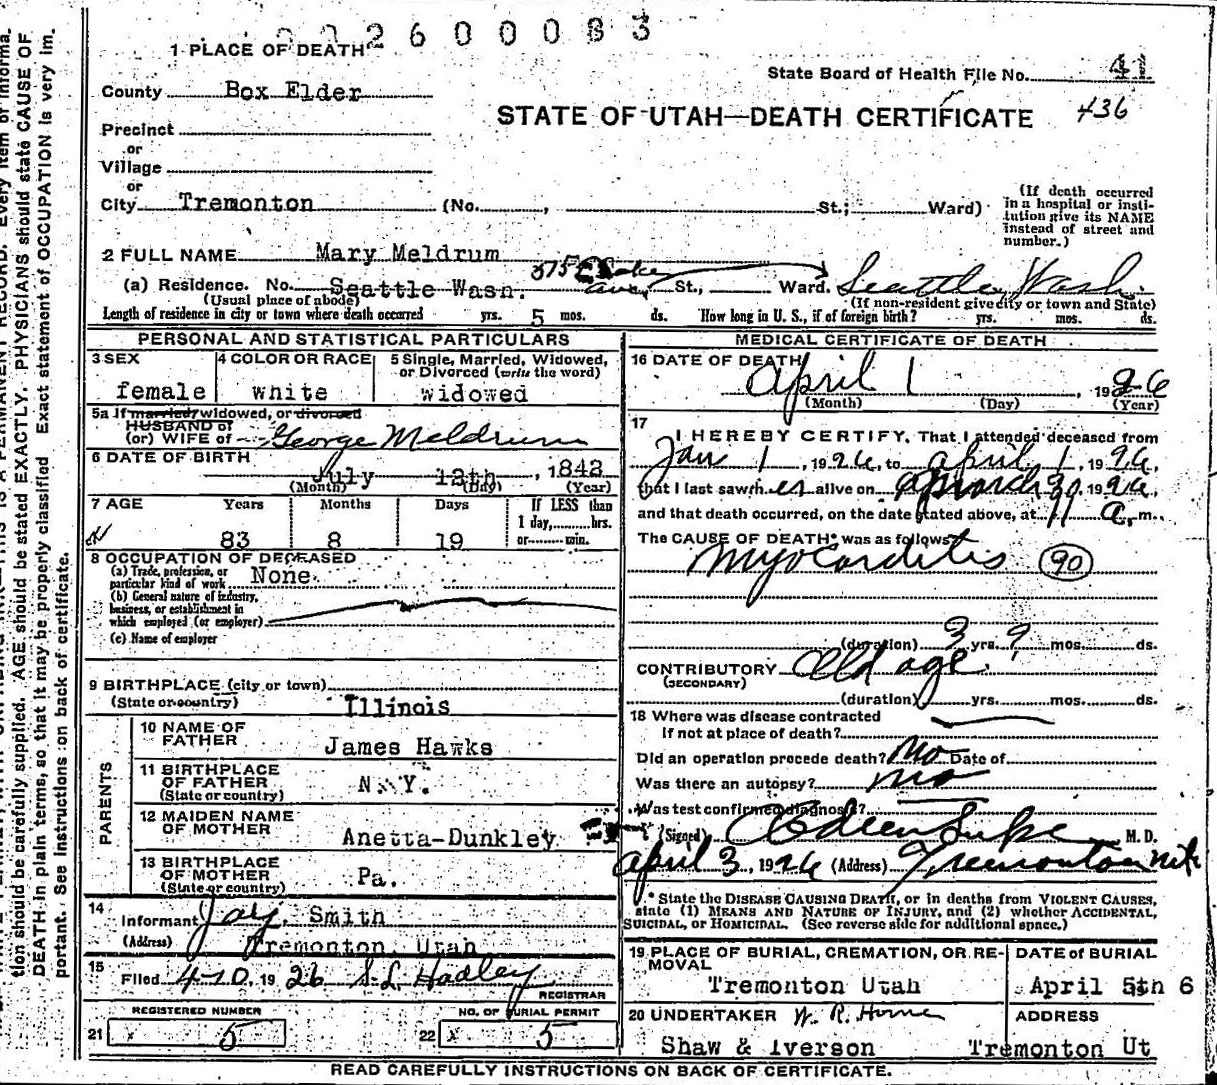 2600083
1 PLACE OF DEATH
State Board of Health File No. 41
County Box Elder
STATE OF UTAH—DEATH CERTIFICATE 436
Precinct
or
Village
or
City Tremonton (No. , St.; Ward)
(If death occurred
in a hospital or insti-
tution give its NAME
instead of street and
number.)
2 FULL NAME Mary Meldrum
(a) Residence. No. Seattle Wash. 375 ave St., Ward. Seattle Wash.
(Usual place of abode) (If non-resident give city or town and State)
Length of residence in city or town where death occurred yrs. 5 mos. ds. How long in U. S., if of foreign birth? yrs. mos. ds.
PERSONAL AND STATISTICAL PARTICULARS
3 SEX 4 COLOR OR RACE 5 Single, Married, Widowed,
or Divorced (write the word)
female white widowed
5a If married, widowed, or divorced
HUSBAND of
(or) WIFE of George Meldrum
6 DATE OF BIRTH
July 12th, 1842
(Month) (Day) (Year)
7 AGE Years Months Days If LESS than
1 day, hrs.
or min.
83 8 19
8 OCCUPATION OF DECEASED
(a) Trade, profession, or
particular kind of work None
(b) General nature of industry,
business, or establishment in
which employed (or employer)
(c) Name of employer
9 BIRTHPLACE (city or town)
(State or country) Illinois
PARENTS
10 NAME OF
FATHER James Hawks
11 BIRTHPLACE
OF FATHER N.Y.
(State or country)
12 MAIDEN NAME
OF MOTHER Anetta-Dunkley
13 BIRTHPLACE
OF MOTHER Pa.
(State or country)
14
Informant Jay. Smith
(Address) Tremonton, Utah
15
Filed 4-10, 1926 S.L. Hadley
REGISTRAR
REGISTERED NUMBER NO. OF BURIAL PERMIT
21 x 5 22 x 5
MEDICAL CERTIFICATE OF DEATH
16 DATE OF DEATH
April 1, 1926
(Month) (Day) (Year)
17
I HEREBY CERTIFY, That I attended deceased from
Jan 1, 1926, to April 1, 1926,
that I last saw her alive on March 30, 1926,
and that death occurred, on the date stated above, at 11 a.m.
The CAUSE OF DEATH* was as follows:
Myocarditis 90
(duration) 3 yrs. ? mos. ds.
CONTRIBUTORY Old age
(SECONDARY)
(duration) yrs. mos. ds.
18 Where was disease contracted
If not at place of death?
Did an operation precede death? No Date of
Was there an autopsy? no
Was test confirmed diagnosis?
(Signed) M. D.
April 3, 1926 (Address) Tremonton Utah
* State the DISEASE CAUSING DEATH, or in deaths from VIOLENT CAUSES,
state (1) MEANS AND NATURE OF INJURY, and (2) whether ACCIDENTAL,
SUICIDAL, or HOMICIDAL. (See reverse side for additional space.)
19 PLACE OF BURIAL, CREMATION, OR RE-
MOVAL
Tremonton Utah
DATE of BURIAL
April 5th 6
20 UNDERTAKER W. R. Horne
Shaw & Iverson
ADDRESS
Tremonton Ut
READ CAREFULLY INSTRUCTIONS ON BACK OF CERTIFICATE.
tion should be carefully supplied. AGE should be stated EXACTLY. PHYSICIANS should state CAUSE OF
DEATH in plain terms, so that it may be properly classified. Exact statement of OCCUPATION is very im-
portant. See instructions on back of certificate.